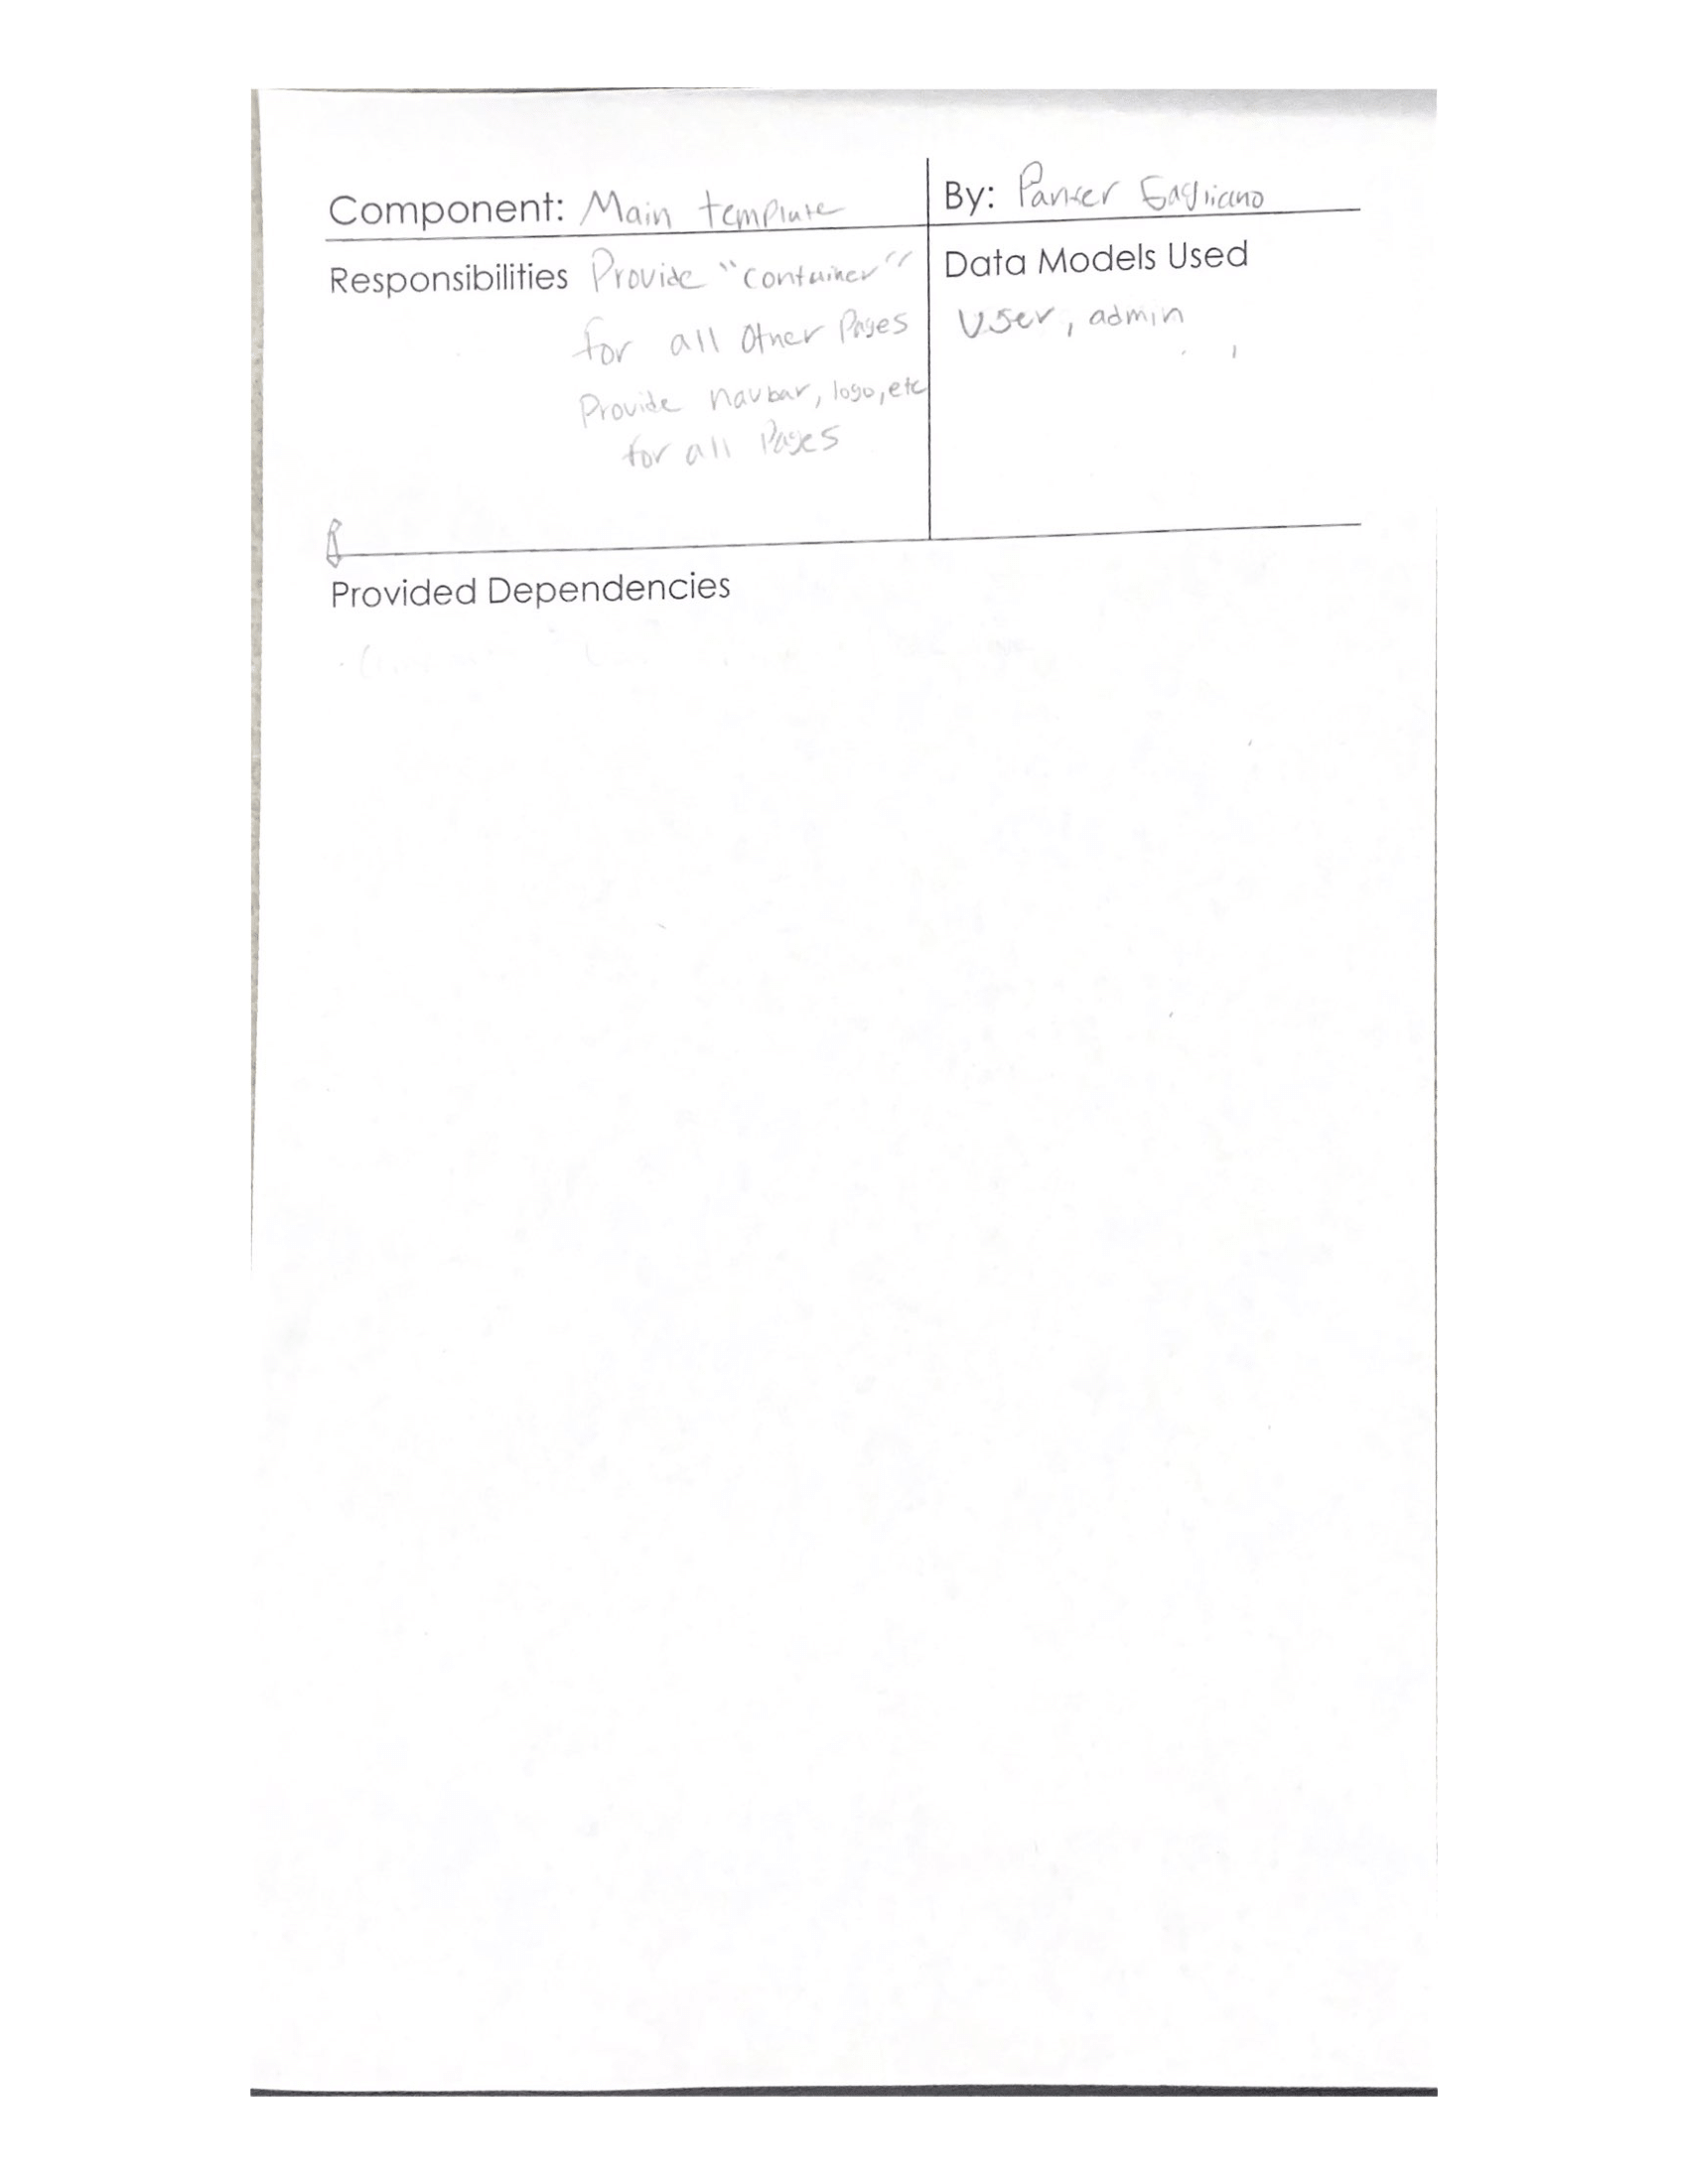 Component: Main template
By: Parker Gagliano
Responsibilities Provide "container"
for all Other Pages
Provide navbar, logo, etc
for all Pages
Data Models Used
User, admin
Provided Dependencies